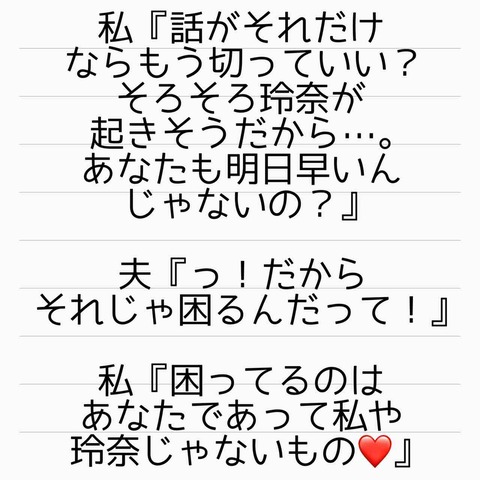 私『話がそれだけ
ならもう切っていい？
そろそろ玲奈が
起きそうだから…。
あなたも明日早いん
じゃないの？』
夫『っ！だから
それじゃ困るんだって！』
私『困ってるのは
あなたであって私や
玲奈じゃないもの❤️』